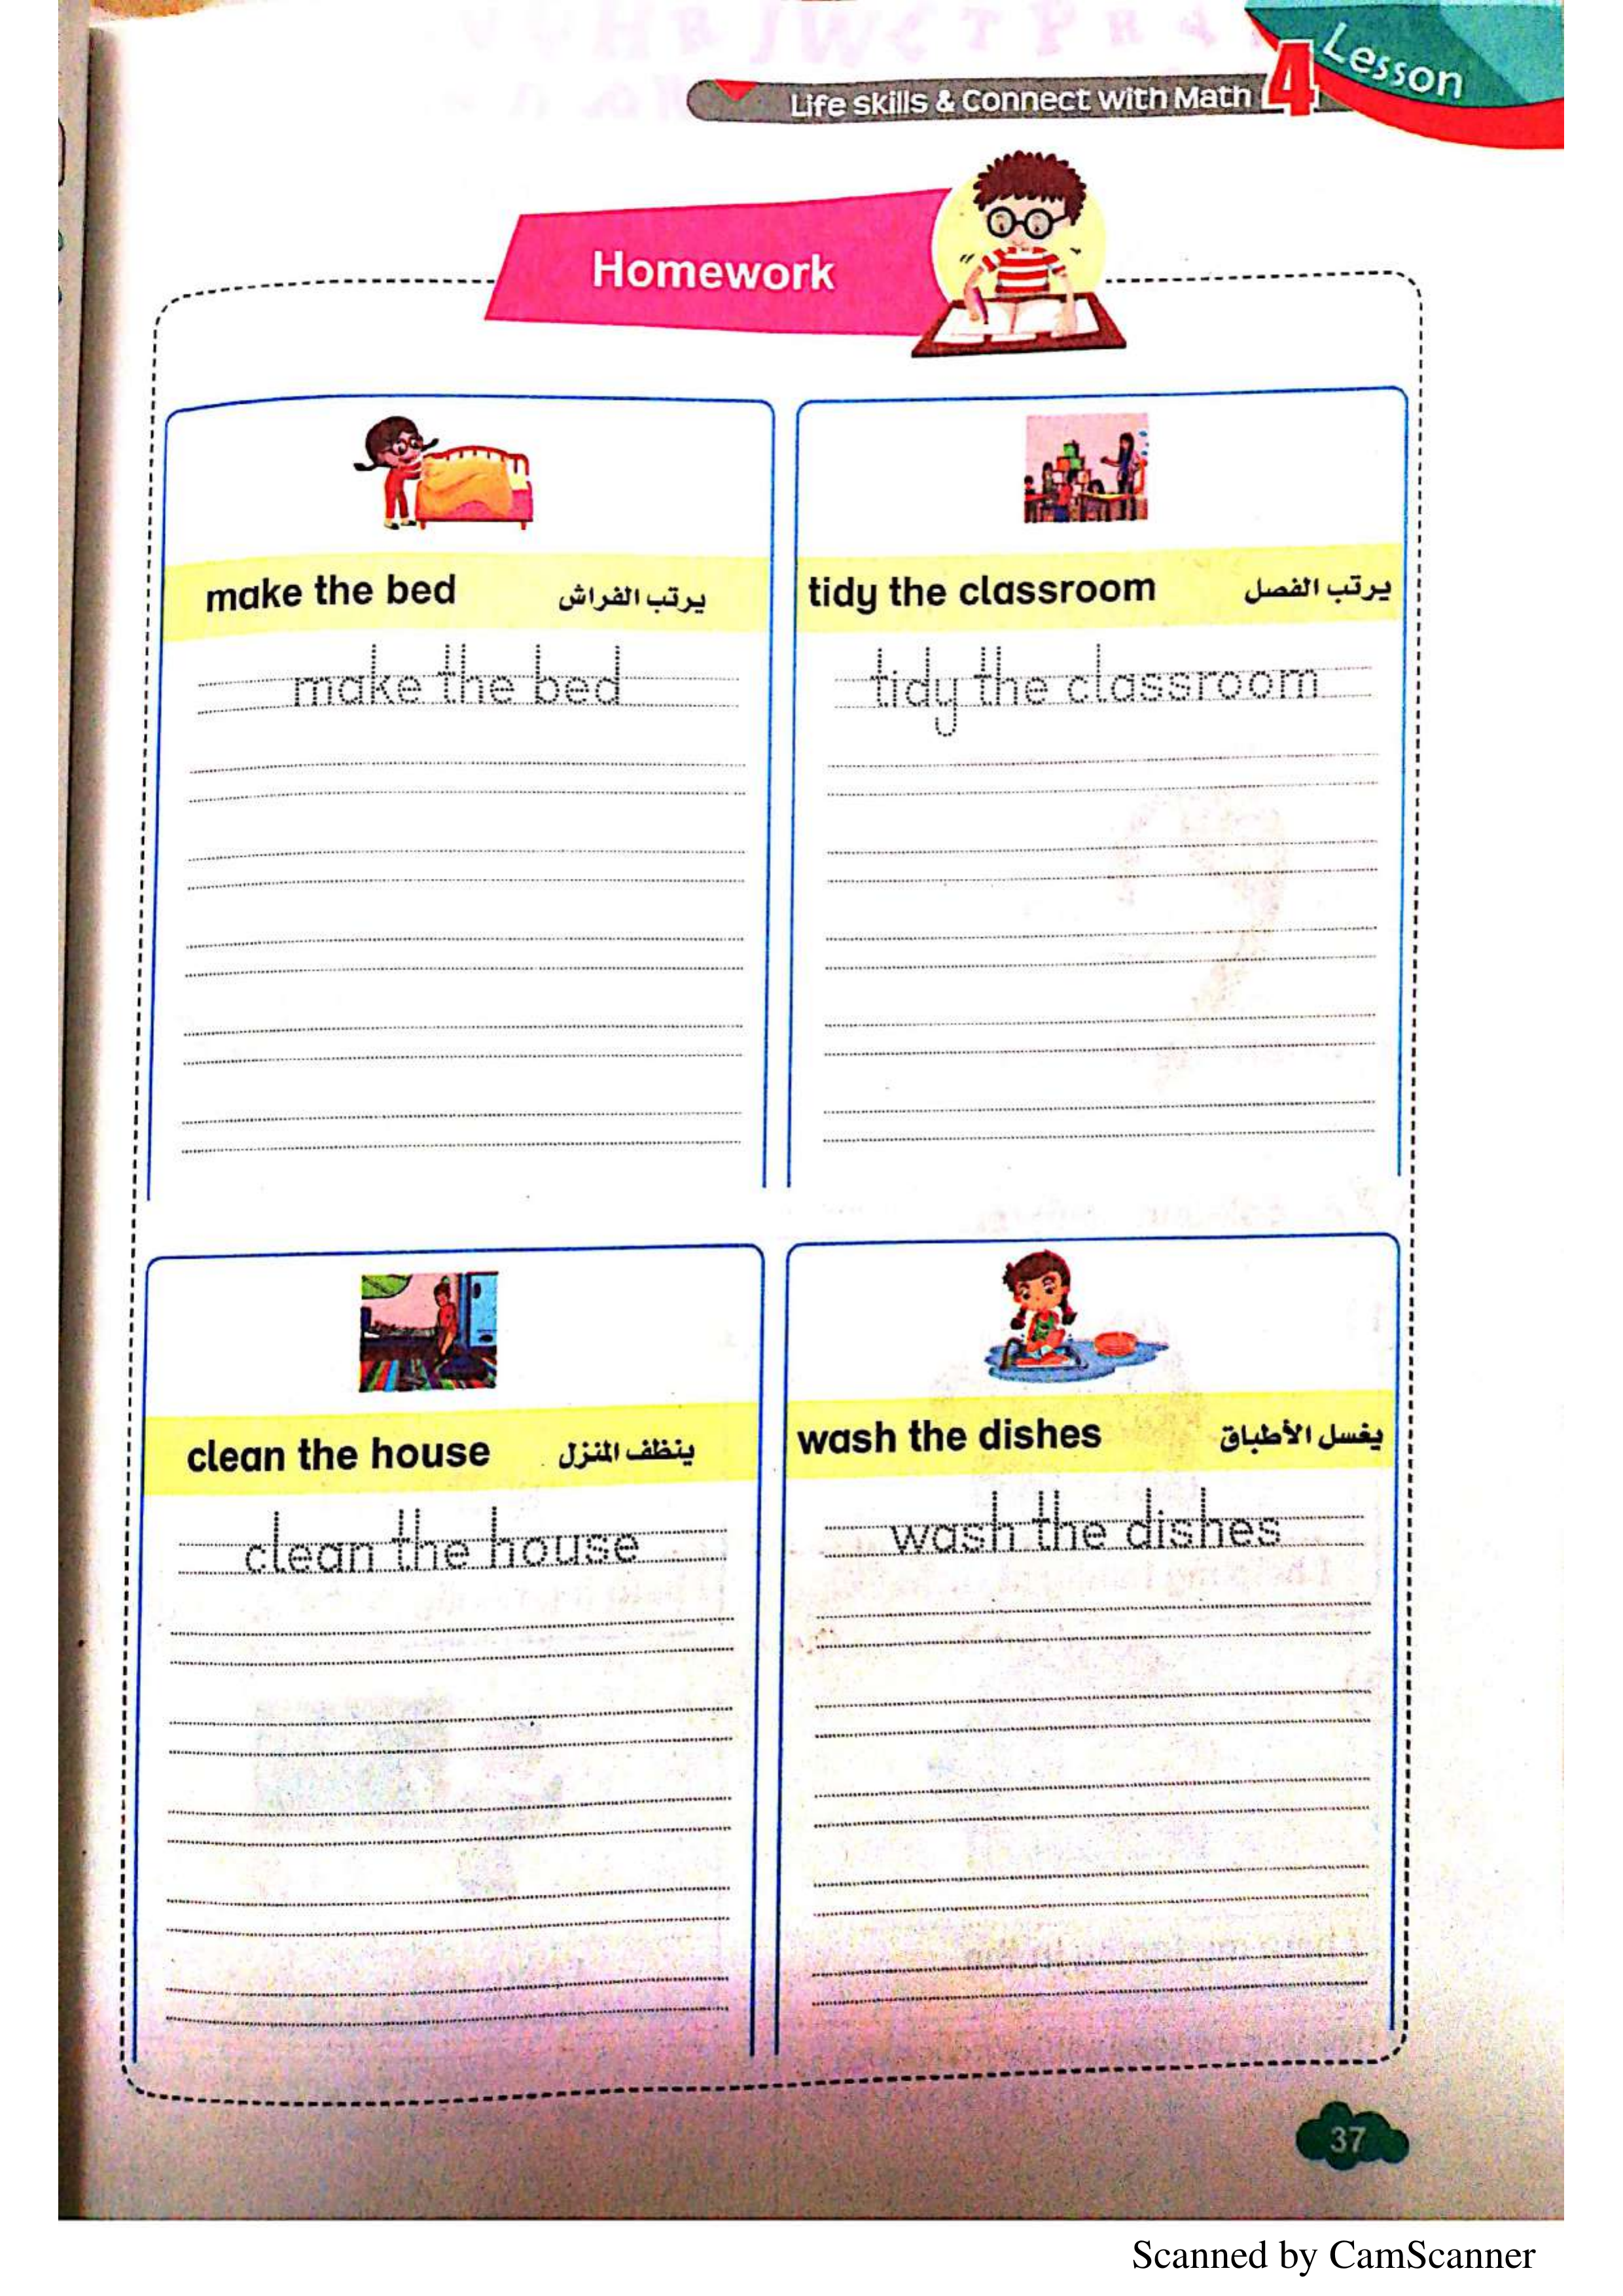 Lesson
Life skills & Connect with Math 4
Homework
make the bed يرتب الفراش
make the bed
tidy the classroom يرتب الفصل
tidy the classroom
clean the house ينظف المنزل
clean the house
wash the dishes يغسل الأطباق
wash the dishes
37
Scanned by CamScanner